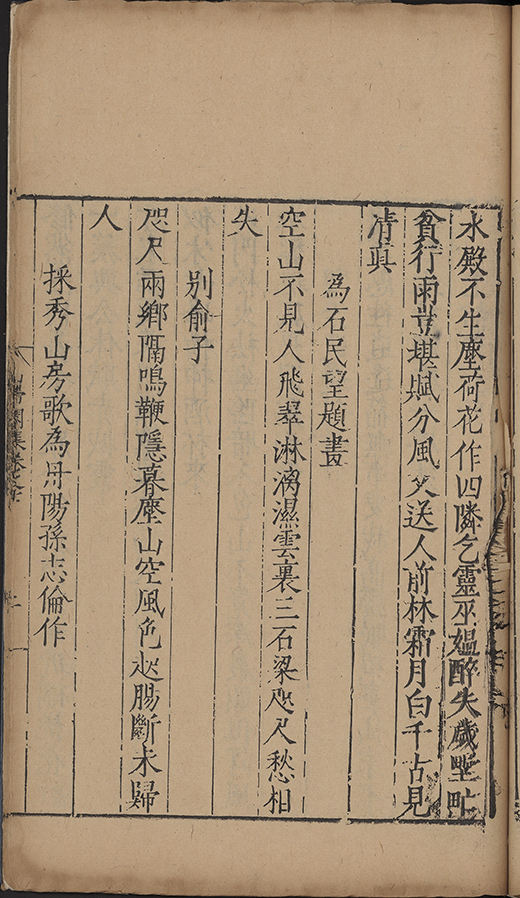 水殿不生塵荷花作四隣乞靈巫媼醉失歲野甿
貧行雨豈堪賦分風又送人前林霜月白千古見
清真
為石民望題畫
空山不見人飛翠淋漓濕雲裏三石梁咫尺愁相
失
別俞子
咫尺兩鄉隔鳴鞭隱暮塵山空風色起腸斷未歸
人
採秀山房歌為丹陽孫志倫作